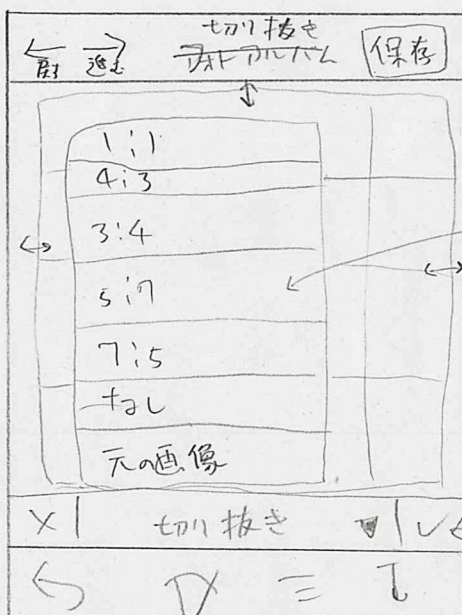 切り抜き
戻る 進む フォトアルバム 保存
1:1
4:3
3:4
5:7
7:5
なし
元の画像
× 切り抜き ▼ ✓